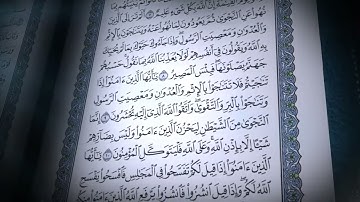 إِنَّ ٱللَّهَ بِكُلِّ شَىْءٍ عَلِيمٌ ٧ أَلَمْ تَرَ إِلَى ٱلَّذِينَ
نُهُوا۟ عَنِ ٱلنَّجْوَىٰ ثُمَّ يَعُودُونَ لِمَا نُهُوا۟ عَنْهُ وَيَتَنَٰجَوْنَ بِٱلْإِثْمِ
وَٱلْعُدْوَٰنِ وَمَعْصِيَتِ ٱلرَّسُولِ وَإِذَا جَآءُوكَ حَيَّوْكَ بِمَا لَمْ يُحَيِّكَ
بِهِ ٱللَّهُ وَيَقُولُونَ فِىٓ أَنفُسِهِمْ لَوْلَا يُعَذِّبُنَا ٱللَّهُ بِمَا نَقُولُ حَسْبُهُمْ
جَهَنَّمُ يَصْلَوْنَهَا فَبِئْسَ ٱلْمَصِيرُ ٨ يَٰٓأَيُّهَا ٱلَّذِينَ ءَامَنُوٓا۟ إِذَا
تَنَٰجَيْتُمْ فَلَا تَتَنَٰجَوْا۟ بِٱلْإِثْمِ وَٱلْعُدْوَٰنِ وَمَعْصِيَتِ ٱلرَّسُولِ
وَتَنَٰجَوْا۟ بِٱلْبِرِّ وَٱلتَّقْوَىٰ وَٱتَّقُوا۟ ٱللَّهَ ٱلَّذِىٓ إِلَيْهِ تُحْشَرُونَ ٩ إِنَّمَا
ٱلنَّجْوَىٰ مِنَ ٱلشَّيْطَٰنِ لِيَحْزُنَ ٱلَّذِينَ ءَامَنُوا۟ وَلَيْسَ بِضَآرِّهِمْ
شَيْـًٔا إِلَّا بِإِذْنِ ٱللَّهِ وَعَلَى ٱللَّهِ فَلْيَتَوَكَّلِ ٱلْمُؤْمِنُونَ ١٠ يَٰٓأَيُّهَا
ٱلَّذِينَ ءَامَنُوٓا۟ إِذَا قِيلَ لَكُمْ تَفَسَّحُوا۟ فِى ٱلْمَجَٰلِسِ فَٱفْسَحُوا۟ يَفْسَحِ
ٱللَّهُ لَكُمْ وَإِذَا قِيلَ ٱنشُزُوا۟ فَٱنشُزُوا۟ يَرْفَعِ ٱللَّهُ ٱلَّذِينَ ءَامَنُوا۟